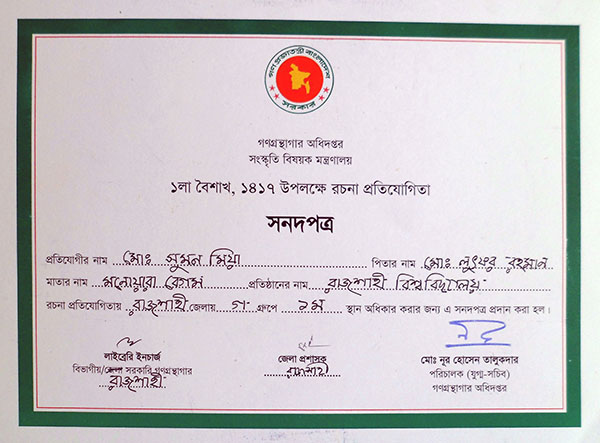 গণপ্রজাতন্ত্রী বাংলাদেশ
সরকার
গণগ্রন্থাগার অধিদপ্তর
সংস্কৃতি বিষয়ক মন্ত্রণালয়
১লা বৈশাখ, ১৪১৭ উপলক্ষে রচনা প্রতিযোগিতা
সনদপত্র
প্রতিযোগীর নাম মোঃ সুমন মিয়া পিতার নাম মোঃ লুৎফর রহমান
মাতার নাম মনোয়ারা বেগম প্রতিষ্ঠানের নাম রাজশাহী বিশ্ববিদ্যালয়
রচনা প্রতিযোগিতায় রাজশাহী জেলায় গ গ্রুপে ১ম স্থান অধিকার করার জন্য এ সনদপত্র প্রদান করা হল।
লাইব্রেরি ইনচার্জ
বিভাগীয়/জেলা সরকারি গণগ্রন্থাগার
রাজশাহী
জেলা প্রশাসক
রাজশাহী
মোঃ নূর হোসেন তালুকদার
পরিচালক (যুগ্ম-সচিব)
গণগ্রন্থাগার অধিদপ্তর